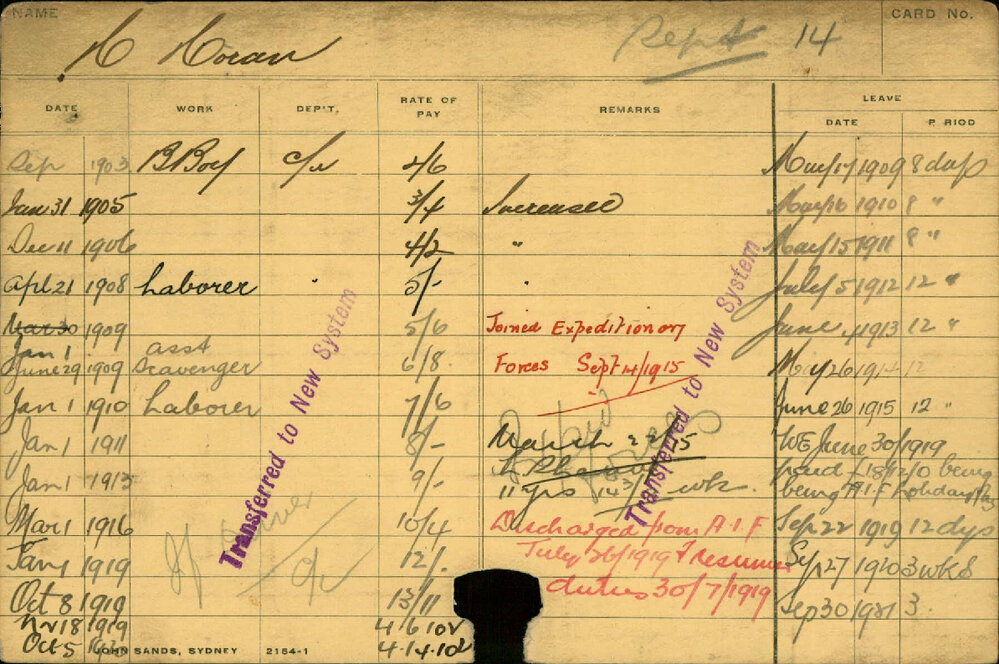 NAME
CARD No.
H Horan
Sept 14
DATE WORK DEP'T. RATE OF PAY REMARKS LEAVE
DATE P RIOD
Sep 1903 B Boy c/w 2/6 May 17 1909 8 days
Jan 31 1905 3/4 Increased May 16 1910 8 "
Dec 11 1906 4/2 " May 15 1911 8 "
Apl 21 1908 Laborer " 5/- " July 5 1912 12 "
Mar 30 1909 5/6 Joined Expeditionary June 1913 12 "
Jan 1
June 29 1909 asst Scavenger 6/8 Forces Sept 14/1915 May 26 1914 12
Jan 1 1910 Laborer 7/6 June 26 1915 12 "
Jan 1 1911 8/- March 22/15 WE June 30/1919
paid £18/12/0 being
Jan 1 1913 9/- 11 yrs wk. being A.I.F holiday
Mar 1 1916 10/4 Discharged from A.I.F Sep 22 1919 12 dys
Jan 1 1919 12/- July 26/1919 & resumed Sep 27 1920 3 wks
Oct 8 1919 13/11 duties 30/7/1919 Sep 30 1921 3.
Nov 18 1919 4.6.10
Oct 5 4.14.10
Transferred to New System
Transferred to New System
JOHN SANDS, SYDNEY 2154-1